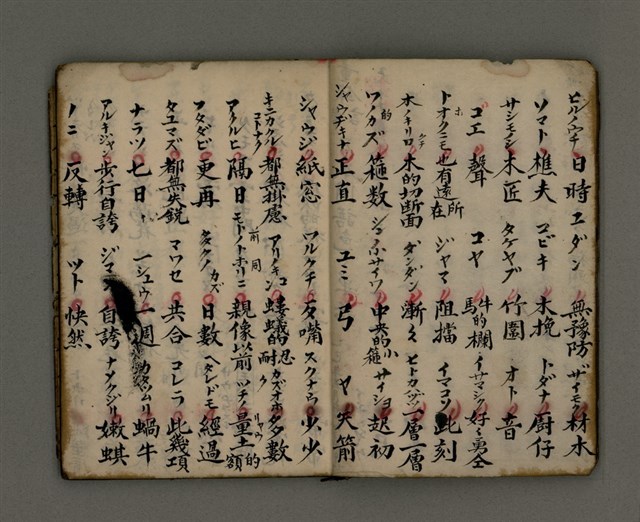 ヒルノウチ 日時 ユダン 無豫防 ザイモク 材木
ソマト 樵夫 コビキ 木挽 トダナ 厨仔
サシモノシ 木匠 タケヤブ 竹圍 オト 音
ゴエ 聲 コヤ 牛馬的欄 イサマシク 好々勇全
トオクニモ 也有遠所在 ジヤマ 阻擋 イマコソ 此刻
木ノキリロ 木的切断面 ダンダン 漸々 ヒトカハヅヽ 一層一層
ワノカズ 箍數 中央的小箍 サイショ 起初
シャウヂキナ 正直 ユミ 弓 ヤ 矢箭
シャウジ 紙窓 ワルクチ 歹嘴 スクナウ 少少
キニカケル 都無掛慮 アリノキン 螻蟻的忍耐 カズオホク 多數
アクルヒ 隔日 モトノトホリニ 親像以前 ツチノリャウ 量土的額
フタタビ 更再 カズ 日數 ヘタレドモ 經過
タユマズ 都無失銳 マワセ 共合 コレラ 此幾項
ナラツ 七日 一シュウ 一週 カタツムリ 蝸牛
アルキジャン 步行自誇 ジマン 自誇 ナメクジリ 嫩蜞
ノニ 反轉 ツト 快然